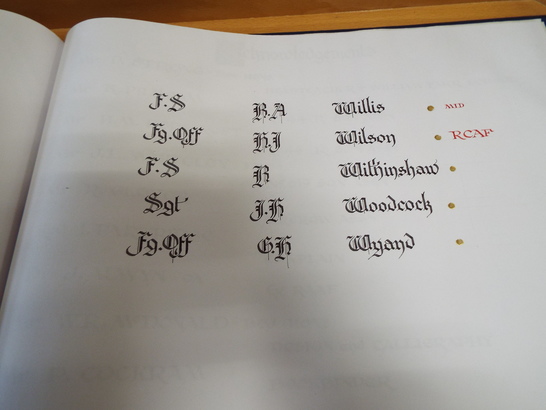 F.S R.A Willis MID
Fg.Off H.J Wilson RCAF
F.S R Wilkinshaw
Sgt J.H Woodcock
Fg.Off G.H Wyand